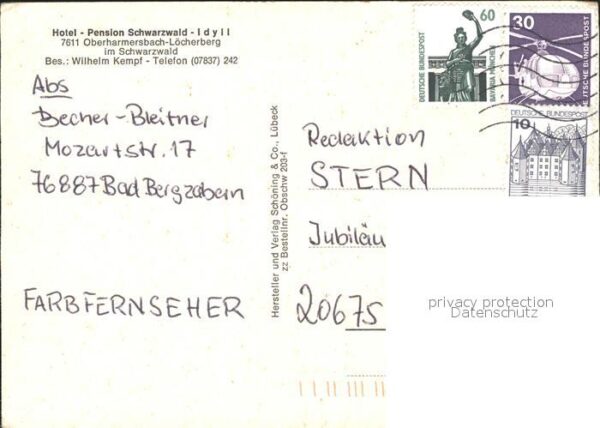 Hotel - Pension Schwarzwald - Idyll
7611 Oberharmersbach-Löcherberg
im Schwarzwald
Bes.: Wilhelm Kempf - Telefon (07837) 242
Abs
Becher-Bleitner
Mozartstr. 17
76887 Bad Bergzabern
FARBFERNSEHER
Hersteller und Verlag Schöning & Co., Lübeck
zz Bestellnr. Obschw 203-f
60
DEUTSCHE BUNDESPOST
BAVARIA MÜNCHEN
30
DEUTSCHE BUNDESPOST
DEUTSCHE BUNDESPOST
10
Redaktion
STERN
Jubiläu
20675
privacy protection
Datenschutz